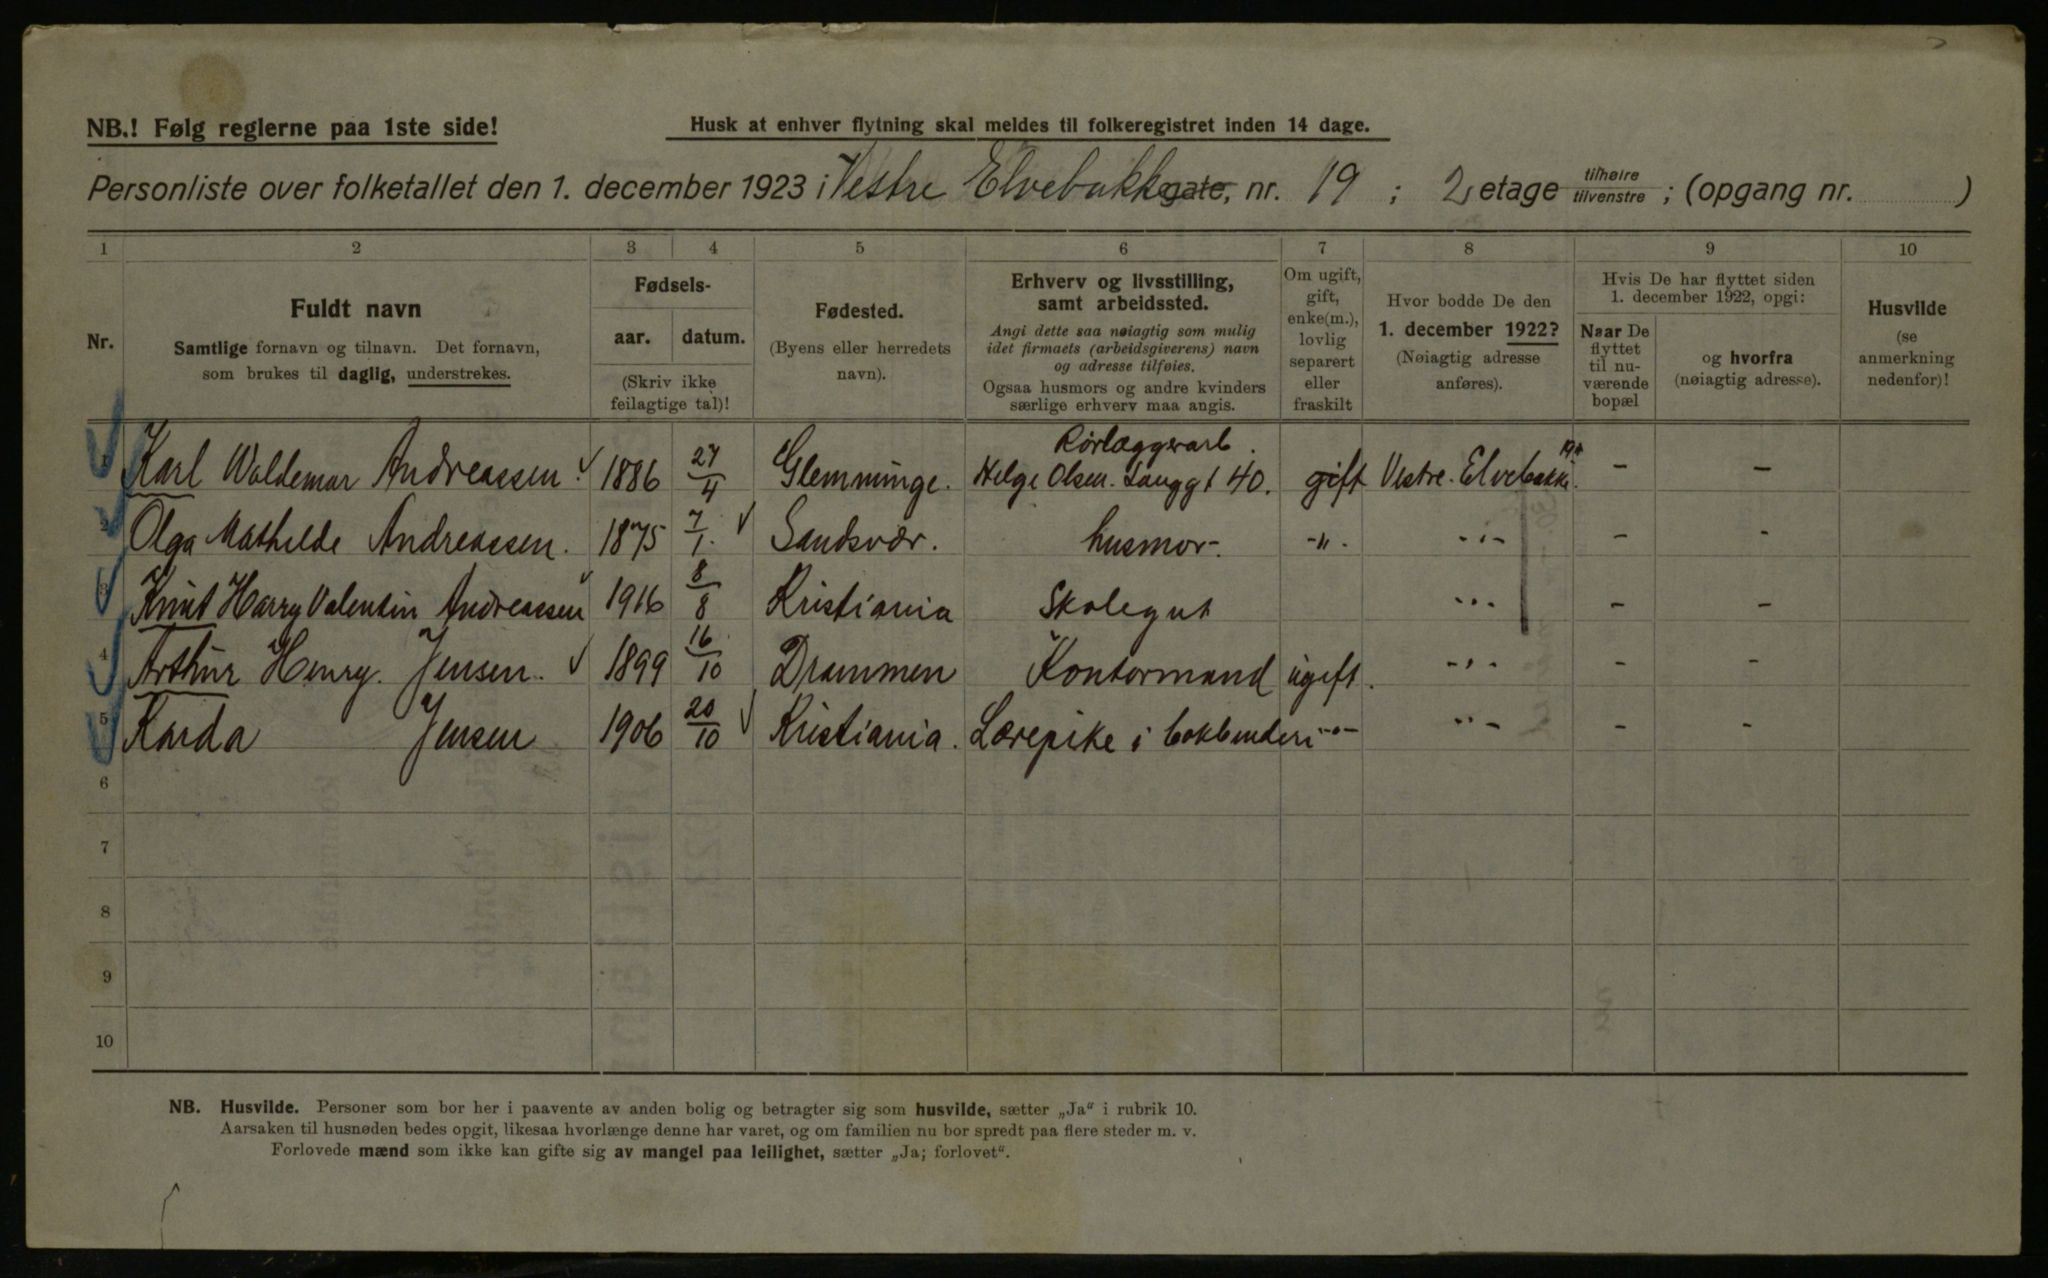 NB.! Følg reglerne paa 1ste side!
Husk at enhver flytning skal meldes til folkeregistret inden 14 dage.
Personliste over folketallet den 1. december 1923 i Vestre Elvebakke gate, nr. 19 ; 2 etage tilhøire tilvenstre ; (opgang nr. )
1 2 3 4 5 6 7 8 9 10
Nr.
Fuldt navn
Samtlige fornavn og tilnavn. Det fornavn,
som brukes til daglig, understrekes.
Fødsels-
aar. datum.
(Skriv ikke
feilagtige tal)!
Fødested.
(Byens eller herredets
navn).
Erhverv og livsstilling,
samt arbeidssted.
Angi dette saa nøiagtig som mulig
idet firmaets (arbeidsgiverens) navn
og adresse tilføies.
Ogsaa husmors og andre kvinders
særlige erhverv maa angis.
Om ugift,
gift,
enke(m.),
lovlig
separert
eller
fraskilt
Hvor bodde De den
1. december 1922?
(Nøiagtig adresse
anføres).
Hvis De har flyttet siden
1. december 1922, opgi:
Naar De
flyttet
til nu-
værende
bopæl
og hvorfra
(nøiagtig adresse).
Husvilde
(se
anmerkning
nedenfor)!
1 Karl Waldemar Andreassen. 1886 27/4 Glemminge. Rørlæggerarb. Helge Olsen. Langgt 40. gift Vestre. Elvebakke. 19 – –
2 Olga Mathilde Andreassen. 1875 7/1. Sandsvær. husmor. -"- -"- – -
3 Knut Harry Valentin Andreassen 1916 8/8 Kristiania Skolegut -"- – –
4 Arthur Henry. Jensen. 1899 16/10 Drammen Kontormand ugift. -"- - -
5 Karda Jensen 1906 20/10 Kristiania. Lærepike i bokbinderi -"- -"- - -
6
7
8
9
10
NB. Husvilde. Personer som bor her i paavente av anden bolig og betragter sig som husvilde, sætter „Ja“ i rubrik 10.
Aarsaken til husnøden bedes opgit, likesaa hvorlænge denne har varet, og om familien nu bor spredt paa flere steder m. v.
Forlovede mænd som ikke kan gifte sig av mangel paa leilighet, sætter „Ja; forlovet“.